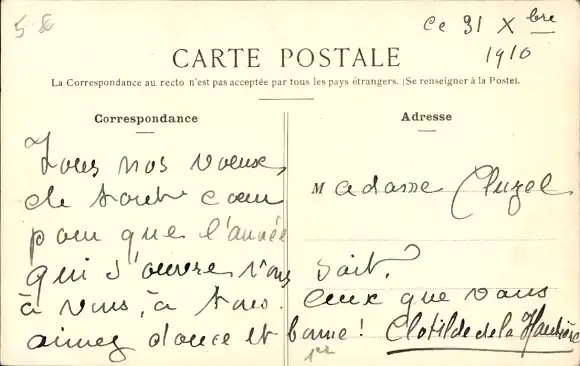 5 8
Ce 31 Xbre
1910
CARTE POSTALE
La Correspondance au recto n'est pas acceptée par tous les pays étrangers. (Se renseigner à la Poste).
Correspondance
Adresse
Tous nos voeux,
de tout cœur
pour que l'année
qui s'ouvre vous soit,
à vous, à tous ceux que vous
aimez douce et bonne! Clotilde de la
Madame Cluzel